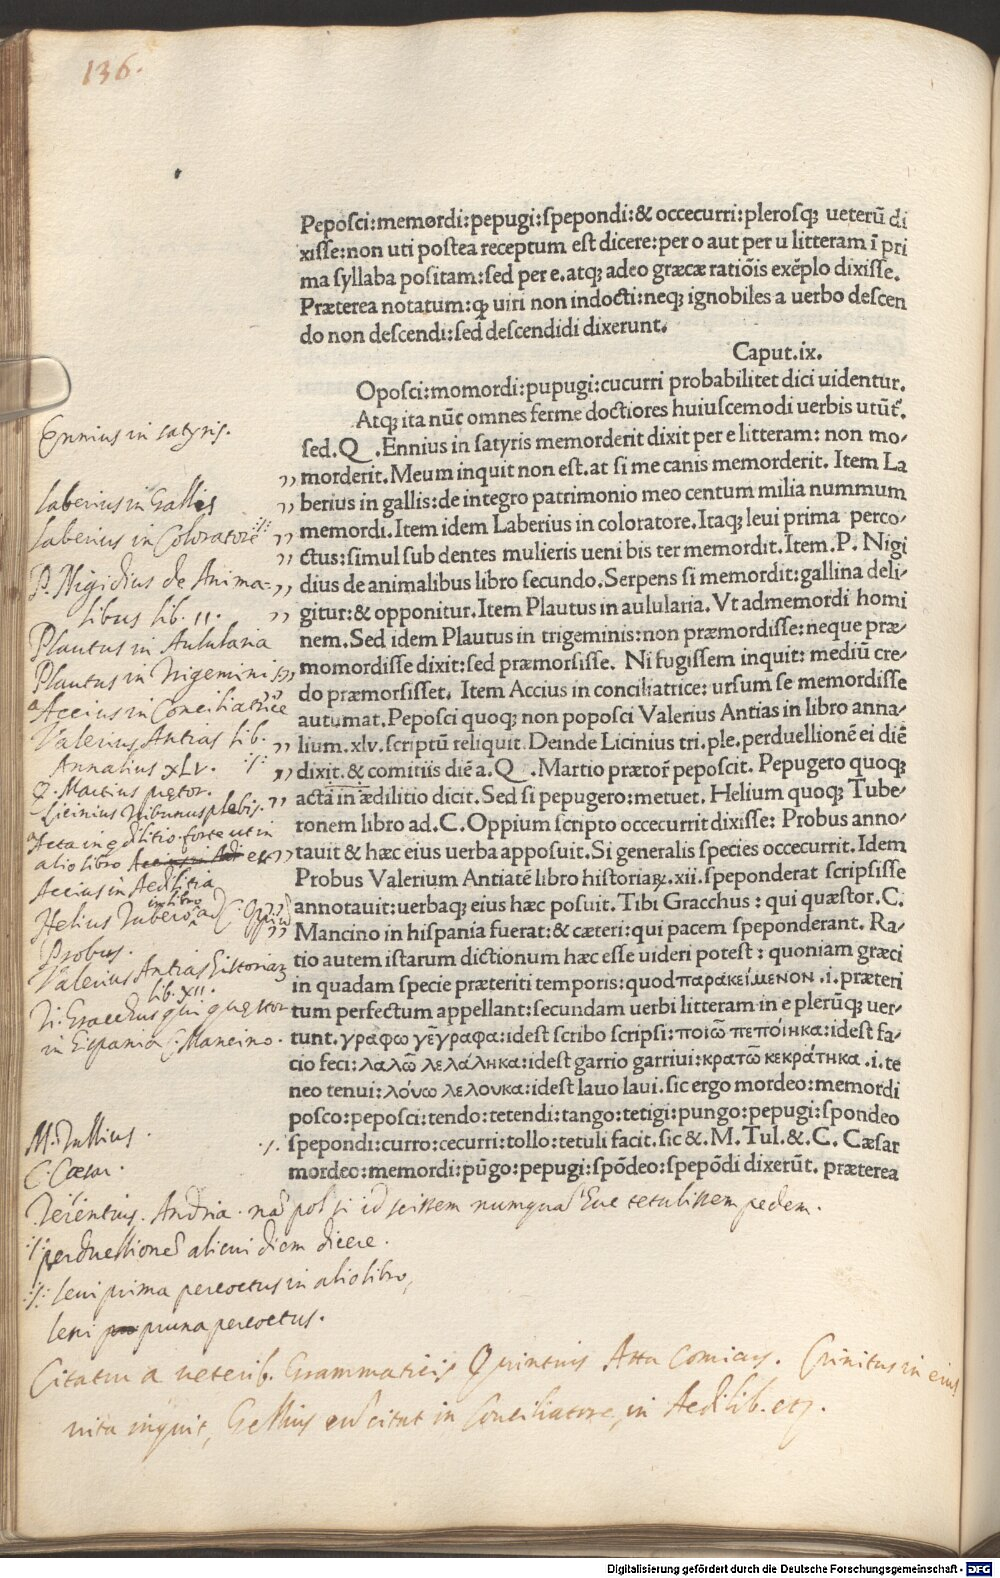 136.
Peposci:memordi:pepugi:spepondi:& occecurri:plerosq; ueterū di
xisse:non uti postea receptum est dicere:per o aut per u litteram ī pri
ma syllaba positam:sed per e.atq; adeo græcæ ratiōis exēplo dixisse.
Præterea notatum:ꝙ uiri non indocti:neq; ignobiles a uerbo descen
do non descendi:sed descendidi dixerunt.
Caput.ix.
Oposci:momordi:pupugi:cucurri probabilitet dici uidentur.
Atq; ita nūc omnes ferme doctiores huiuscemodi uerbis utūt᷑.
sed.Q.Ennius in satyris memorderit dixit per e litteram: non mo-
morderit.Meum inquit non est.at si me canis memorderit. Item La
berius in gallis:de integro patrimonio meo centum milia nummum
memordi.Item idem Laberius in coloratore.Itaq; leui prima perco-
ctus:simul sub dentes mulieris ueni bis ter memordit.Item.P. Nigi
dius de animalibus libro secundo.Serpens si memordit:gallina deli-
gitur:& opponitur.Item Plautus in aulularia.Vt admemordi homi
nem.Sed idem Plautus in trigeminis:non præmordisse:neque præ-
momordisse dixit:sed præmorsisse. Ni fugissem inquit: mediū cre-
do præmorsisset. Item Accius in conciliatrice: ursum se memordisse
autumat.Peposci quoq; non poposci Valerius Antias in libro anna-
lium.xlv.scriptū reliquit.Deinde Licinius tri.ple.perduellionē ei diē
dixit.& comitiis diē a.Q.Martio prætor̄ peposcit. Pepugero quoq;
acta in ædilitio dicit.Sed si pepugero:metuet. Helium quoq; Tube-
ronem libro ad.C.Oppium scripto occecurrit dixisse: Probus anno-
tauit & hæc eius uerba apposuit.Si generalis species occecurrit.Idem
Probus Valerium Antiatē libro historiaꝝ.xii.speponderat scripsisse
annotauit:uerbaq; eius hæc posuit. Tibi Gracchus : qui quæstor.C.
Mancino in hispania fuerat:& cæteri:qui pacem speponderant. Ra-
tio autem istarum dictionum hæc esse uideri potest : quoniam græci
in quadam specie præteriti temporis:quod παρακείμενον .i.præteri
tum perfectum appellant:secundam uerbi litteram in e plerūq; uer-
tunt.γραφω γέγραφα:idest scribo scripsi:ποιῶ πεποίηκα:idest fa-
cio feci:λαλῶ λελάληκα:idest garrio garriui:κρατῶ κεκράτηκα .i.te
neo tenui:λόυω λελουκα:idest lauo laui.sic ergo mordeo:memordi
posco:peposci:tendo:tetendi:tango:tetigi:pungo:pepugi:spondeo
spepondi:curro:cecurri:tollo:tetuli facit.sic &.M.Tul.&.C. Cæsar
mordeo:memordi:pūgo:pepugi:spōdeo:spepōdi dixerūt. præterea
Ennius in satyris.
Laberius in Gallis
Laberius in Coloratore
P. Nigidius de Anima-
libus lib. II.
Plautus in Aulularia
Plautus in Trigemini
Accius in Conciliatrice
Valerius Antias lib.
Annalius XLV.
Q. Martius prętor.
Licinius Tribunus plebis.
Acta in ędilitio. forte ut in
alio libro
Accius in Aedilitia
Helius Tubero, in libro ad C. Oppiū
Probus.
Valerius Antias historiaꝝ
lib. XII.
Ti. Gracchus qui quęstor
in hispania C. Mancino.
M. Tullius.
C. Cæsar.
Terentius. Andria. nā pol si id scissem numquā huc tetulissem pedem.
perduellionē alicui diem dicere.
leui prima percoctus in alio libro,
leni pruna percoctus.
Citatur a veterib. Grammaticis Quintius Atta comicus. Crinitus in eius
uita inquit, Gellius eū citat in Conciliatore, in Aedilib. etc.
Digitalisierung gefördert durch die Deutsche Forschungsgemeinschaft - DFG